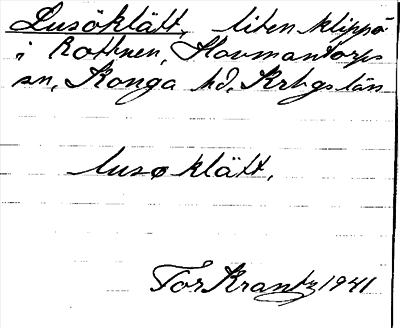 Lusöklätt, liten klippö
i Rottnen, Hovmantorps
sn, Konga hd, Krbgs län
lusøklätt,
Tor Krantz 1941